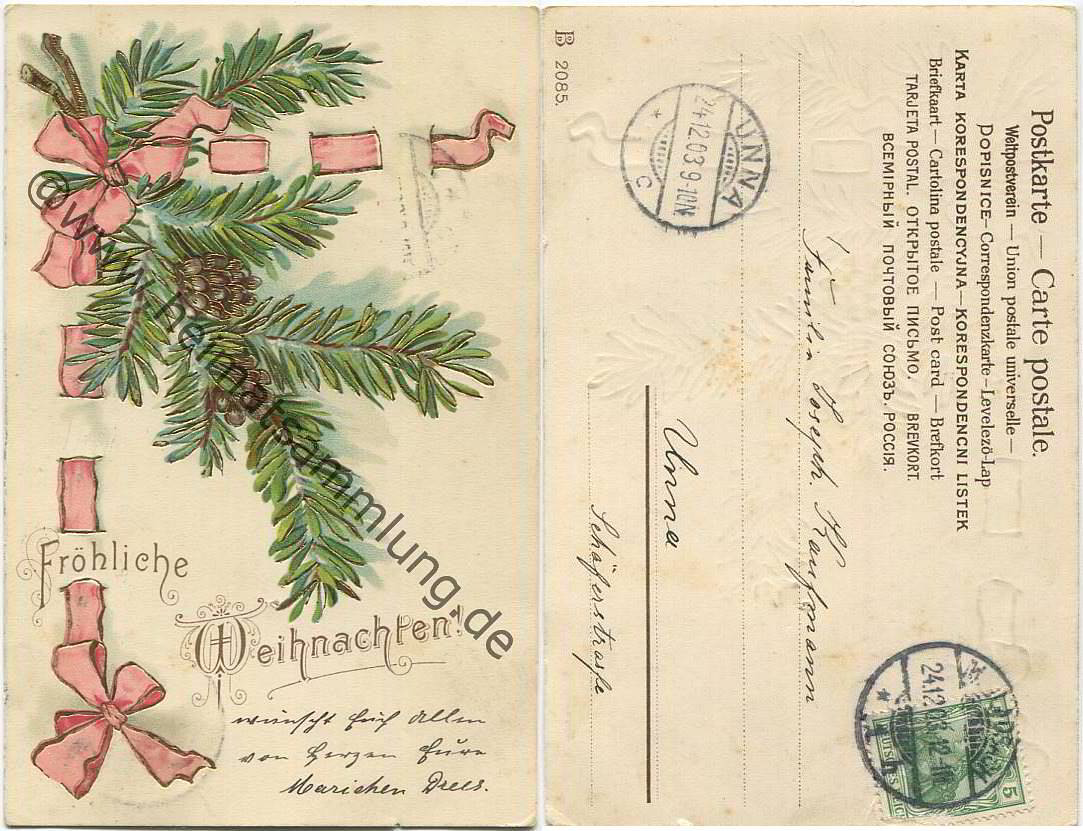 Fröhliche
Weihnachten!
wünscht Euch allen
von Herzen Eure
Mariechen Drees.
©www.heimatsammlung.de
Postkarte — Carte postale.
Weltpostverein — Union postale universelle —
DOPISNICE — Correspondenzkarte — Levelezö-Lap
KARTA KORESPONDENCYJNA — KORESPONDENCNI LISTEK
Briefkaart — Cartolina postale — Post card — Brefkort
TARJETA POSTAL. ОТКРЫТОЕ ПИСЬМО. BREVKORT.
ВСЕМІРНЫЙ ПОЧТОВЫЙ СОЮЗЪ. РОССІЯ.
Familie Joseph. Kaufmann
Unna
Schäferstraße
UNNA
24.12.03.9-10.V.
C
24.12.03.
5
B 2085.